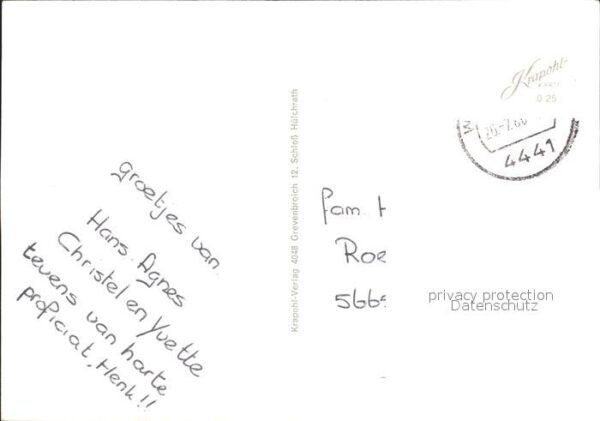 groetjes van
Hans. Agnes
Christel en Yvette
tevens van harte
proficiat, Henk!!
Krapohl-Verlag 4048 Grevenbroich 12. Schloß Hülchrath
Krapohl-
KARTE
0 25
4441
fam. H
Roe
566
privacy protection
Datenschutz